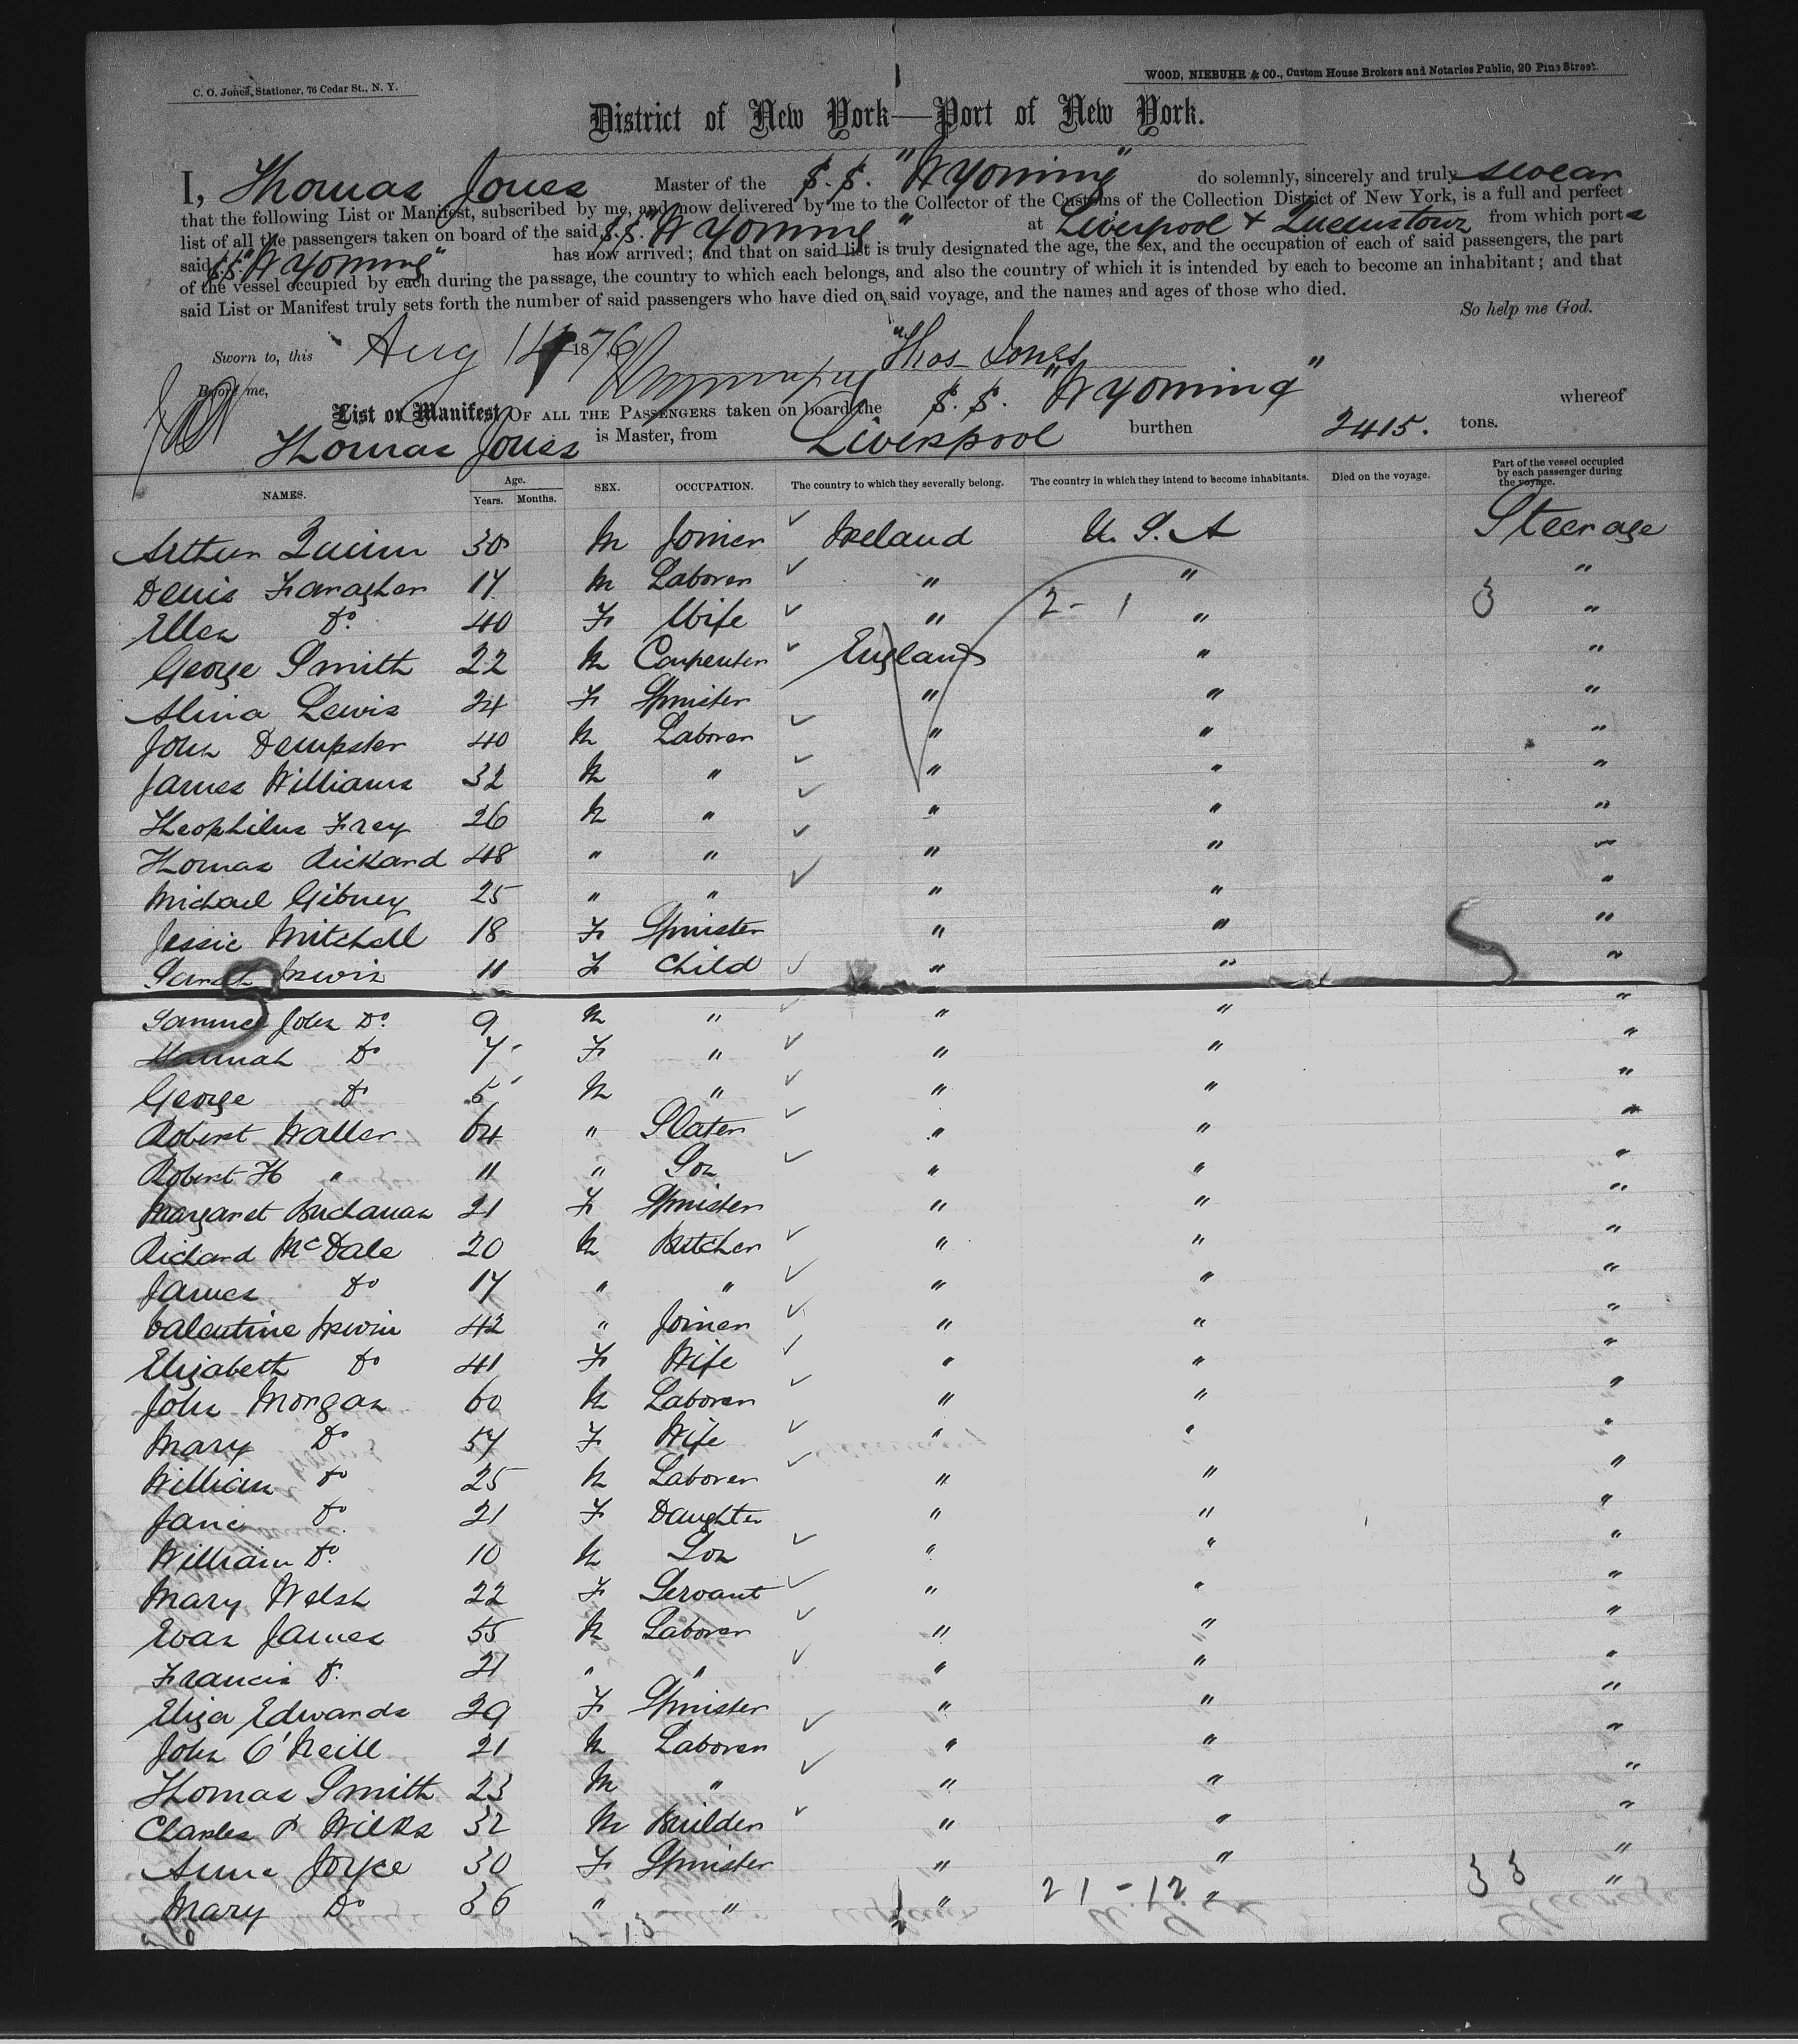 C. O. Jones, Stationer, 76 Cedar St., N. Y.
WOOD, NIEBUHR & CO., Custom House Brokers and Notaries Public, 20 Pine Street.
District of New York—Port of New York.
I, Thomas Jones Master of the S.S. "Wyoming" do solemnly, sincerely and truly swear
that the following List or Manifest, subscribed by me, and now delivered by me to the Collector of the Customs of the Collection District of New York, is a full and perfect
list of all the passengers taken on board of the said S.S. "Wyoming" at Liverpool + Queenstown from which ports
said S.S. "Wyoming" has now arrived; and that on said list is truly designated the age, the sex, and the occupation of each of said passengers, the part
of the vessel occupied by each during the passage, the country to which each belongs, and also the country of which it is intended by each to become an inhabitant; and that
said List or Manifest truly sets forth the number of said passengers who have died on said voyage, and the names and ages of those who died.
So help me God.
Sworn to, this Aug 14 1876 "Thos Jones
Before me,
List or Manifest OF ALL THE PASSENGERS taken on board the S.S. "Wyoming" whereof
Thomas Jones is Master, from Liverpool burthen 2415. tons.
NAMES. Age. Years. Months. SEX. OCCUPATION. The country to which they severally belong. The country in which they intend to become inhabitants. Died on the voyage. Part of the vessel occupied by each passenger during the voyage.
Arthur Quinn 30 M Joiner Ireland U.S.A Steerage
Denis Faragher 17 M Laborer " " "
Ellen Do 40 F Wife " 2 - 1 " 3 "
George Smith 22 M Carpenter England " "
Alina Lewis 24 F Spinster " " "
John Dempster 40 M Laborer " " "
James Williams 32 M " " " "
Theophilus Frey 26 M " " " "
Thomas Rickard 48 " " " " "
Michael Gibney 25 " " " " "
Jessie Mitchell 18 F Spinster " " "
Sarah Irwin 11 F Child " " "
Samuel John Do. 9 M " " " "
Hannah Do 7 F " " " "
George Do 5 M " " " "
Robert Waller 64 " Slater " " "
Robert H " 11 " Son " " "
Margaret Buchanan 21 F Spinster " " "
Richard McDale 20 M Butcher " " "
James Do 17 " " " " "
Valentine Irwin 42 " Joiner " " "
Elizabeth Do 41 F Wife " " "
John Morgan 60 M Laborer " " "
Mary Do 57 F Wife " " "
William Do 25 M Laborer " " "
Jane Do. 21 F Daughter " " "
William Do. 10 M Son " " "
Mary Welsh 22 F Servant " " "
Evan James 55 M Laborer " " "
Francis D. 21 " " " " "
Eliza Edwards 29 F Spinster " " "
John O'Neill 21 M Laborer " " "
Thomas Smith 23 M " " " "
Charles P Wilks 32 M Builder " " "
Anne Joyce 30 F Spinster " " "
Mary Do 36 " " " 21 - 12 " 33 "